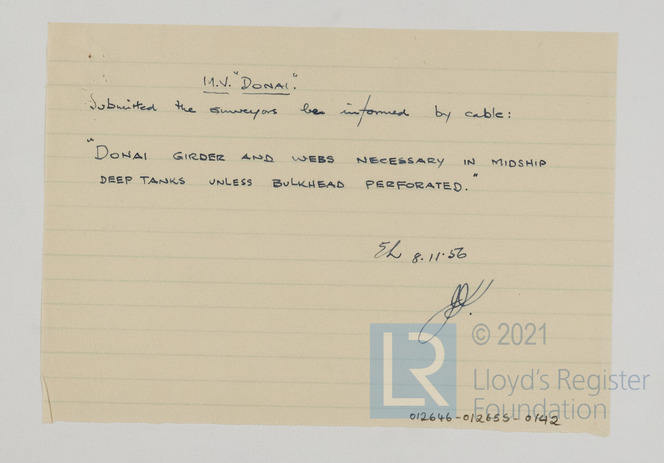 M.V. "DONAI".
Submitted the surveyors be informed by cable:
"DONAI GIRDER AND WEBS NECESSARY IN MIDSHIP
DEEP TANKS UNLESS BULKHEAD PERFORATED."
8.11.56
LR
© 2021
Lloyd's Register
Foundation
012646-012655-0142